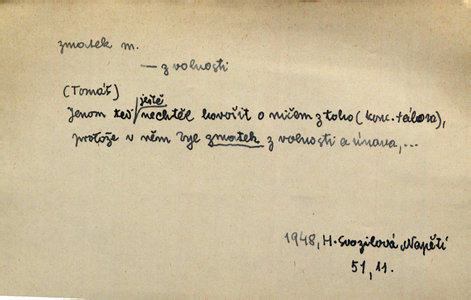 zmatek m.
— z volnosti
(Tomáš)
ještě
Jenom teď nechtěl hovořit o ničem z toho (konc. tábora),
protože v něm byl zmatek z volnosti a únava,...
1948, H. Svozilová, Napětí
51, 11.